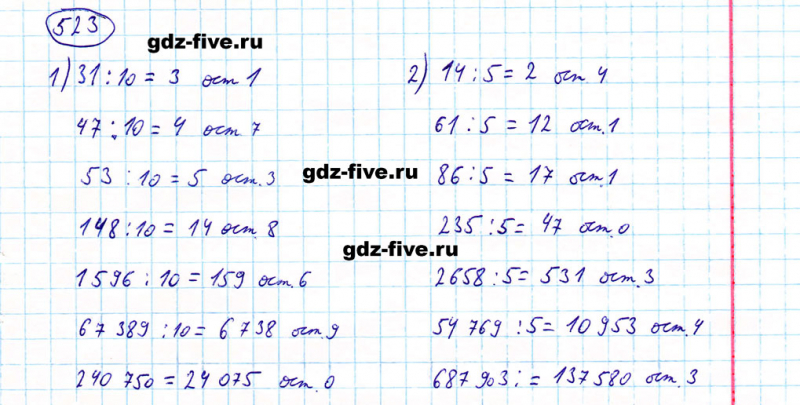 523
gdz-five.ru
1) 31 : 10 = 3 ост 1
47 : 10 = 4 ост. 7
53 : 10 = 5 ост. 3
148 : 10 = 14 ост. 8
1596 : 10 = 159 ост. 6
67 389 : 10 = 6 738 ост. 9
240 750 = 24 075 ост. 0
2) 14 : 5 = 2 ост 4
61 : 5 = 12 ост. 1
86 : 5 = 17 ост. 1
235 : 5 = 47 ост. 0
2658 : 5 = 531 ост. 3
54 769 : 5 = 10 953 ост. 4
687 903 : = 137 580 ост. 3
gdz-five.ru
gdz-five.ru